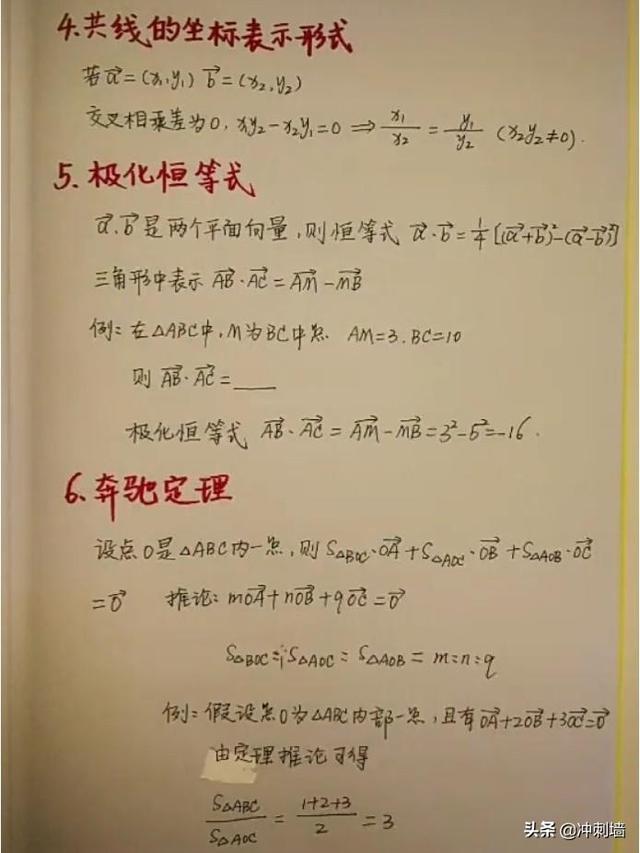 4.共线的坐标表示形式
若a⃗=(x₁,y₁) b⃗=(x₂,y₂)
交叉相乘差为0, x₁y₂-x₂y₁=0 ⇒ x₁/x₂ = y₁/y₂ (x₂y₂≠0).
5.极化恒等式
a⃗.b⃗是两个平面向量,则恒等式 a⃗·b⃗=1/4[(a⃗+b⃗)²-(a⃗-b⃗)²]
三角形中表示 AB⃗·AC⃗=AM⃗-MB⃗
例:在△ABC中,M为BC中点 AM=3.BC=10
则 AB⃗·AC⃗=____
极化恒等式 AB⃗·AC⃗=AM⃗-MB⃗=3²-5²=-16.
6.奔驰定理
设点O是△ABC内一点,则S△BOC·OA⃗+S△AOC·OB⃗+S△AOB·OC⃗
=0⃗ 推论: mOA⃗+nOB⃗+qOC⃗=0⃗
S△BOC:S△AOC:S△AOB=m:n:q
例:假设点O为△ABC内部一点,且有OA⃗+2OB⃗+3OC⃗=0⃗
由定理推论可得
S△ABC/S△AOC = (1+2+3)/2 = 3
头条 @冲刺墙